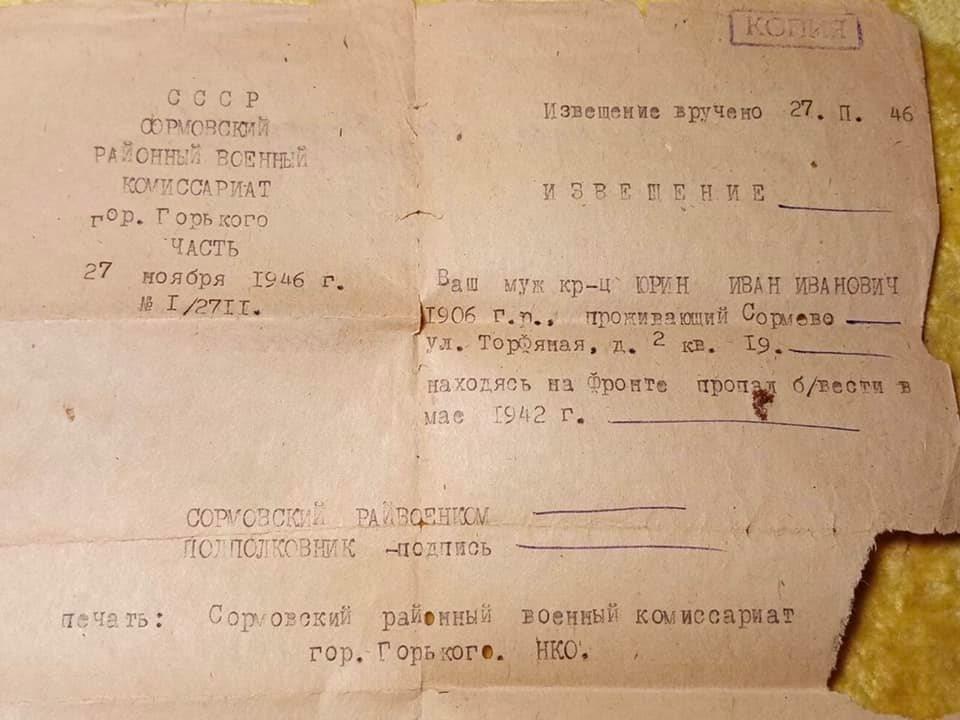 КОПИЯ
С С С Р
СОРМОВСКИЙ
РАЙОННЫЙ ВОЕННЫЙ
КОМИССАРИАТ
гор. Горького
ЧАСТЬ
27 ноября 1946 г.
№ I/27II.
Извещение вручено 27. П. 46
И З В Е Щ Е Н И Е
Ваш муж кр-ц ЮРИН ИВАН ИВАНОВИЧ
1906 г.р., проживающий Сормово
ул. Торфяная, д. 2 кв. 19.
находясь на фронте пропал б/вести в
мае 1942 г.
СОРМОВСКИЙ РАЙВОЕНКОМ
ПОДПОЛКОВНИК -подпись
печать: Сормовский районный военный комиссариат
гор. Горького. НКО.